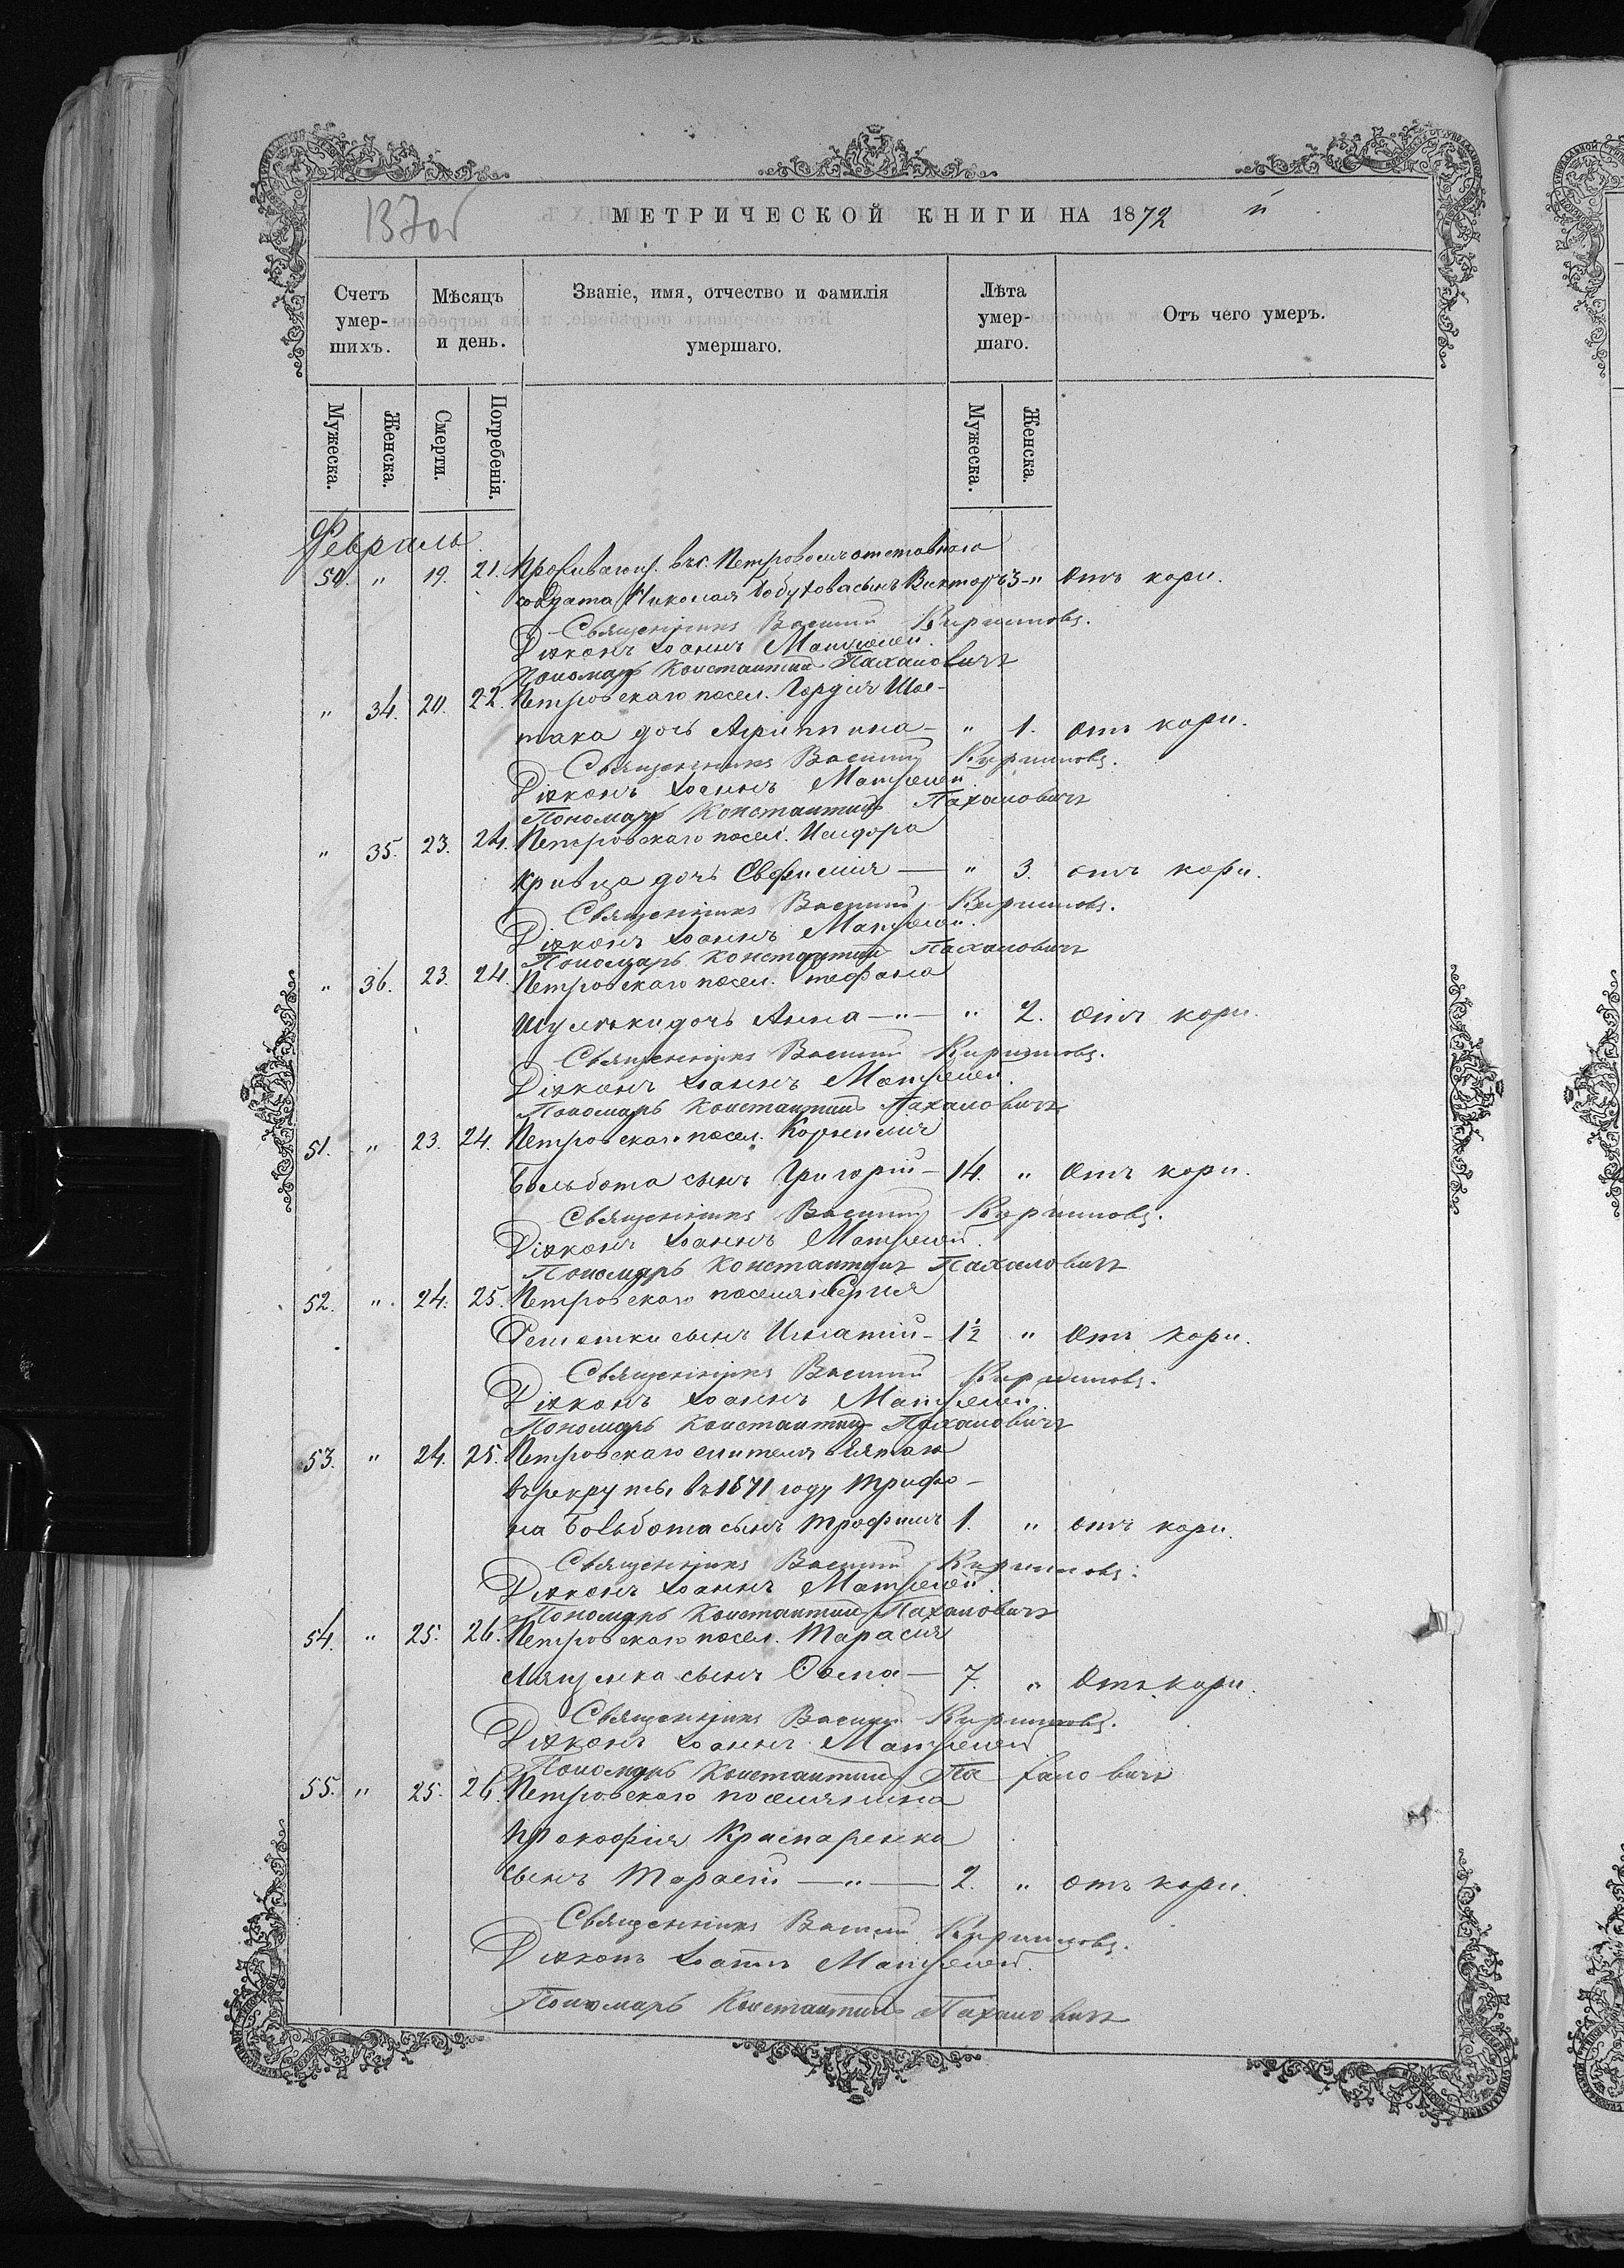 137об
МЕТРИЧЕСКОЙ КНИГИ НА 1872 й
Счетъ умер-шихъ. Мѣсяцъ и день. Званіе, имя, отчество и фамилія умершаго. Лѣта умер-шаго. Отъ чего умеръ.
Мужеска. Женска. Смерти. Погребенія. Мужеска. Женска.
Февраль.
50. " 19. 21. Проживающ. въ с. Петровомъ отставнаго
солдата Николая сынъ Викторъ 3 - " Отъ кори.
Священникъ Василій Кириловъ.
Діяконъ Іоаннъ Матусевій.
Пономарь Константинъ Пахаловичъ
" 34. 20. 22. Петровскаго посел. Гордія Шос-
така дочь Агриппина - " 1. отъ кори.
Священникъ Василій Кириловъ.
Діяконъ Іоаннъ Матусевій
Пономарь Константинъ Пахаловичъ
" 35. 23. 24. Петровскаго посел. Исидора
Кривца дочь Евфимія — " 3. отъ кори.
Священникъ Василій Кириловъ.
Діяконъ Іоаннъ Матусевій.
Пономарь Константинъ Пахаловичъ
" 36. 23. 24. Петровскаго посел. Стефана
Шульжки дочь Анна — " — " 2. отъ кори.
Священникъ Василій Кириловъ.
Діяконъ Іоаннъ Матусевій.
Пономарь Константинъ Пахаловичъ
51. " 23. 24. Петровскаго посел. Корнилія
Больбота сынъ Григорій - 14. " Отъ кори.
Священникъ Василій Кириловъ.
Діяконъ Іоаннъ Матусевій.
Пономарь Константинъ Пахаловичъ
52. " 24. 25. Петровскаго поселян. Сергія
Решетки сынъ Игнатій - 1½ " Отъ кори.
Священникъ Василій Кириловъ.
Діяконъ Іоаннъ Матусевій.
Пономарь Константинъ Пахаловичъ
53. " 24. 25. Петровскаго жителя взятаго
въ рекруты въ 1871 году Трифо-
на Больбота сынъ Трофимъ 1. " отъ кори.
Священникъ Василій Кириловъ.
Діяконъ Іоаннъ Матусевій.
Пономарь Константинъ Пахаловичъ
54. " 25. 26. Петровскаго посел. Тарасія
сынъ Фома — 7. " Отъ кори.
Священникъ Василій Кириловъ.
Діяконъ Іоаннъ Матусевій
Пономарь Константинъ Пахаловичъ
55. " 25. 26. Петровскаго поселянина
Прокофія
сынъ Тарасій — " — 2. " отъ кори.
Священникъ Василій Кириловъ.
Діяконъ Іоаннъ Матусевій.
Пономарь Константинъ Пахаловичъ